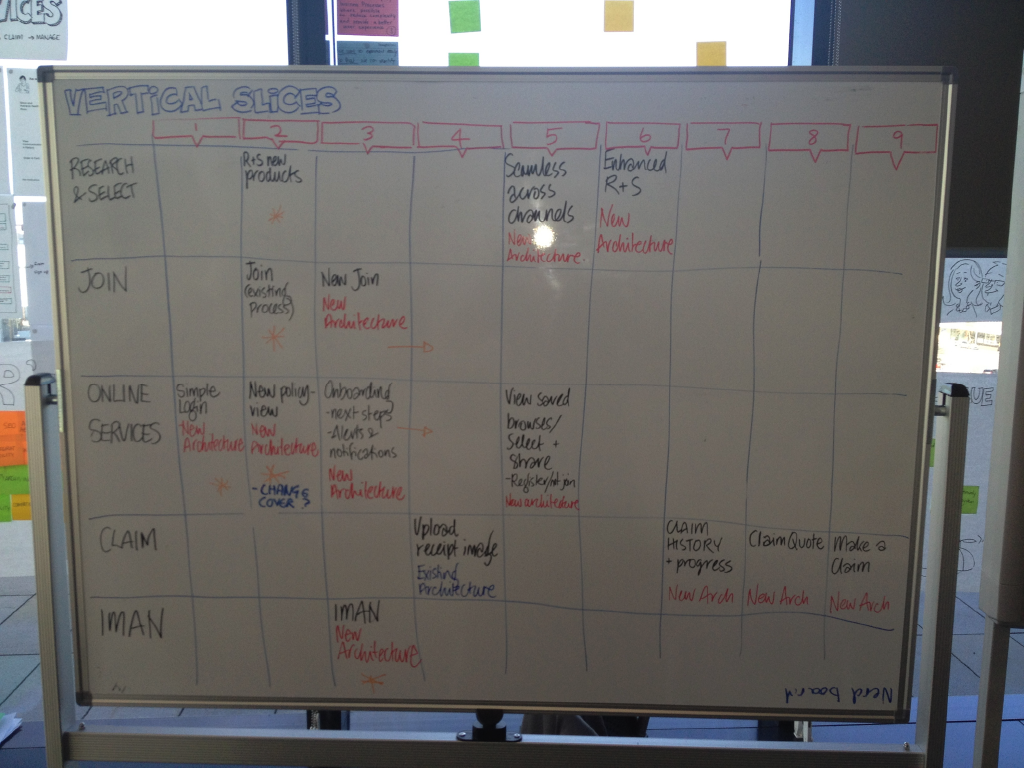 VICES
CLAIM → MANAGE
VERTICAL SLICES
1 2 3 4 5 6 7 8 9
RESEARCH
& SELECT
R+S new
products
*
Seamless
across
channels
New
Architecture.
Enhanced
R+S
New
Architecture
JOIN
Join
(existing
process)
*
New Join
New
Architecture
→
ONLINE
SERVICES
Simple
Login
New
Architecture
*
New policy-
view
New
Architecture
*
- CHANGE
COVER?
Onboarding
-next steps
-Alerts &
notifications
New
Architecture
→
View saved
browses/
Select +
Share
-Register/not join
New architecture
CLAIM
Upload
receipt image
Existing
Architecture
CLAIM
HISTORY
+ progress
New Arch
Claim Quote
New Arch
Make a
Claim
New Arch
IMAN
IMAN
New
Architecture
*
Nerd board